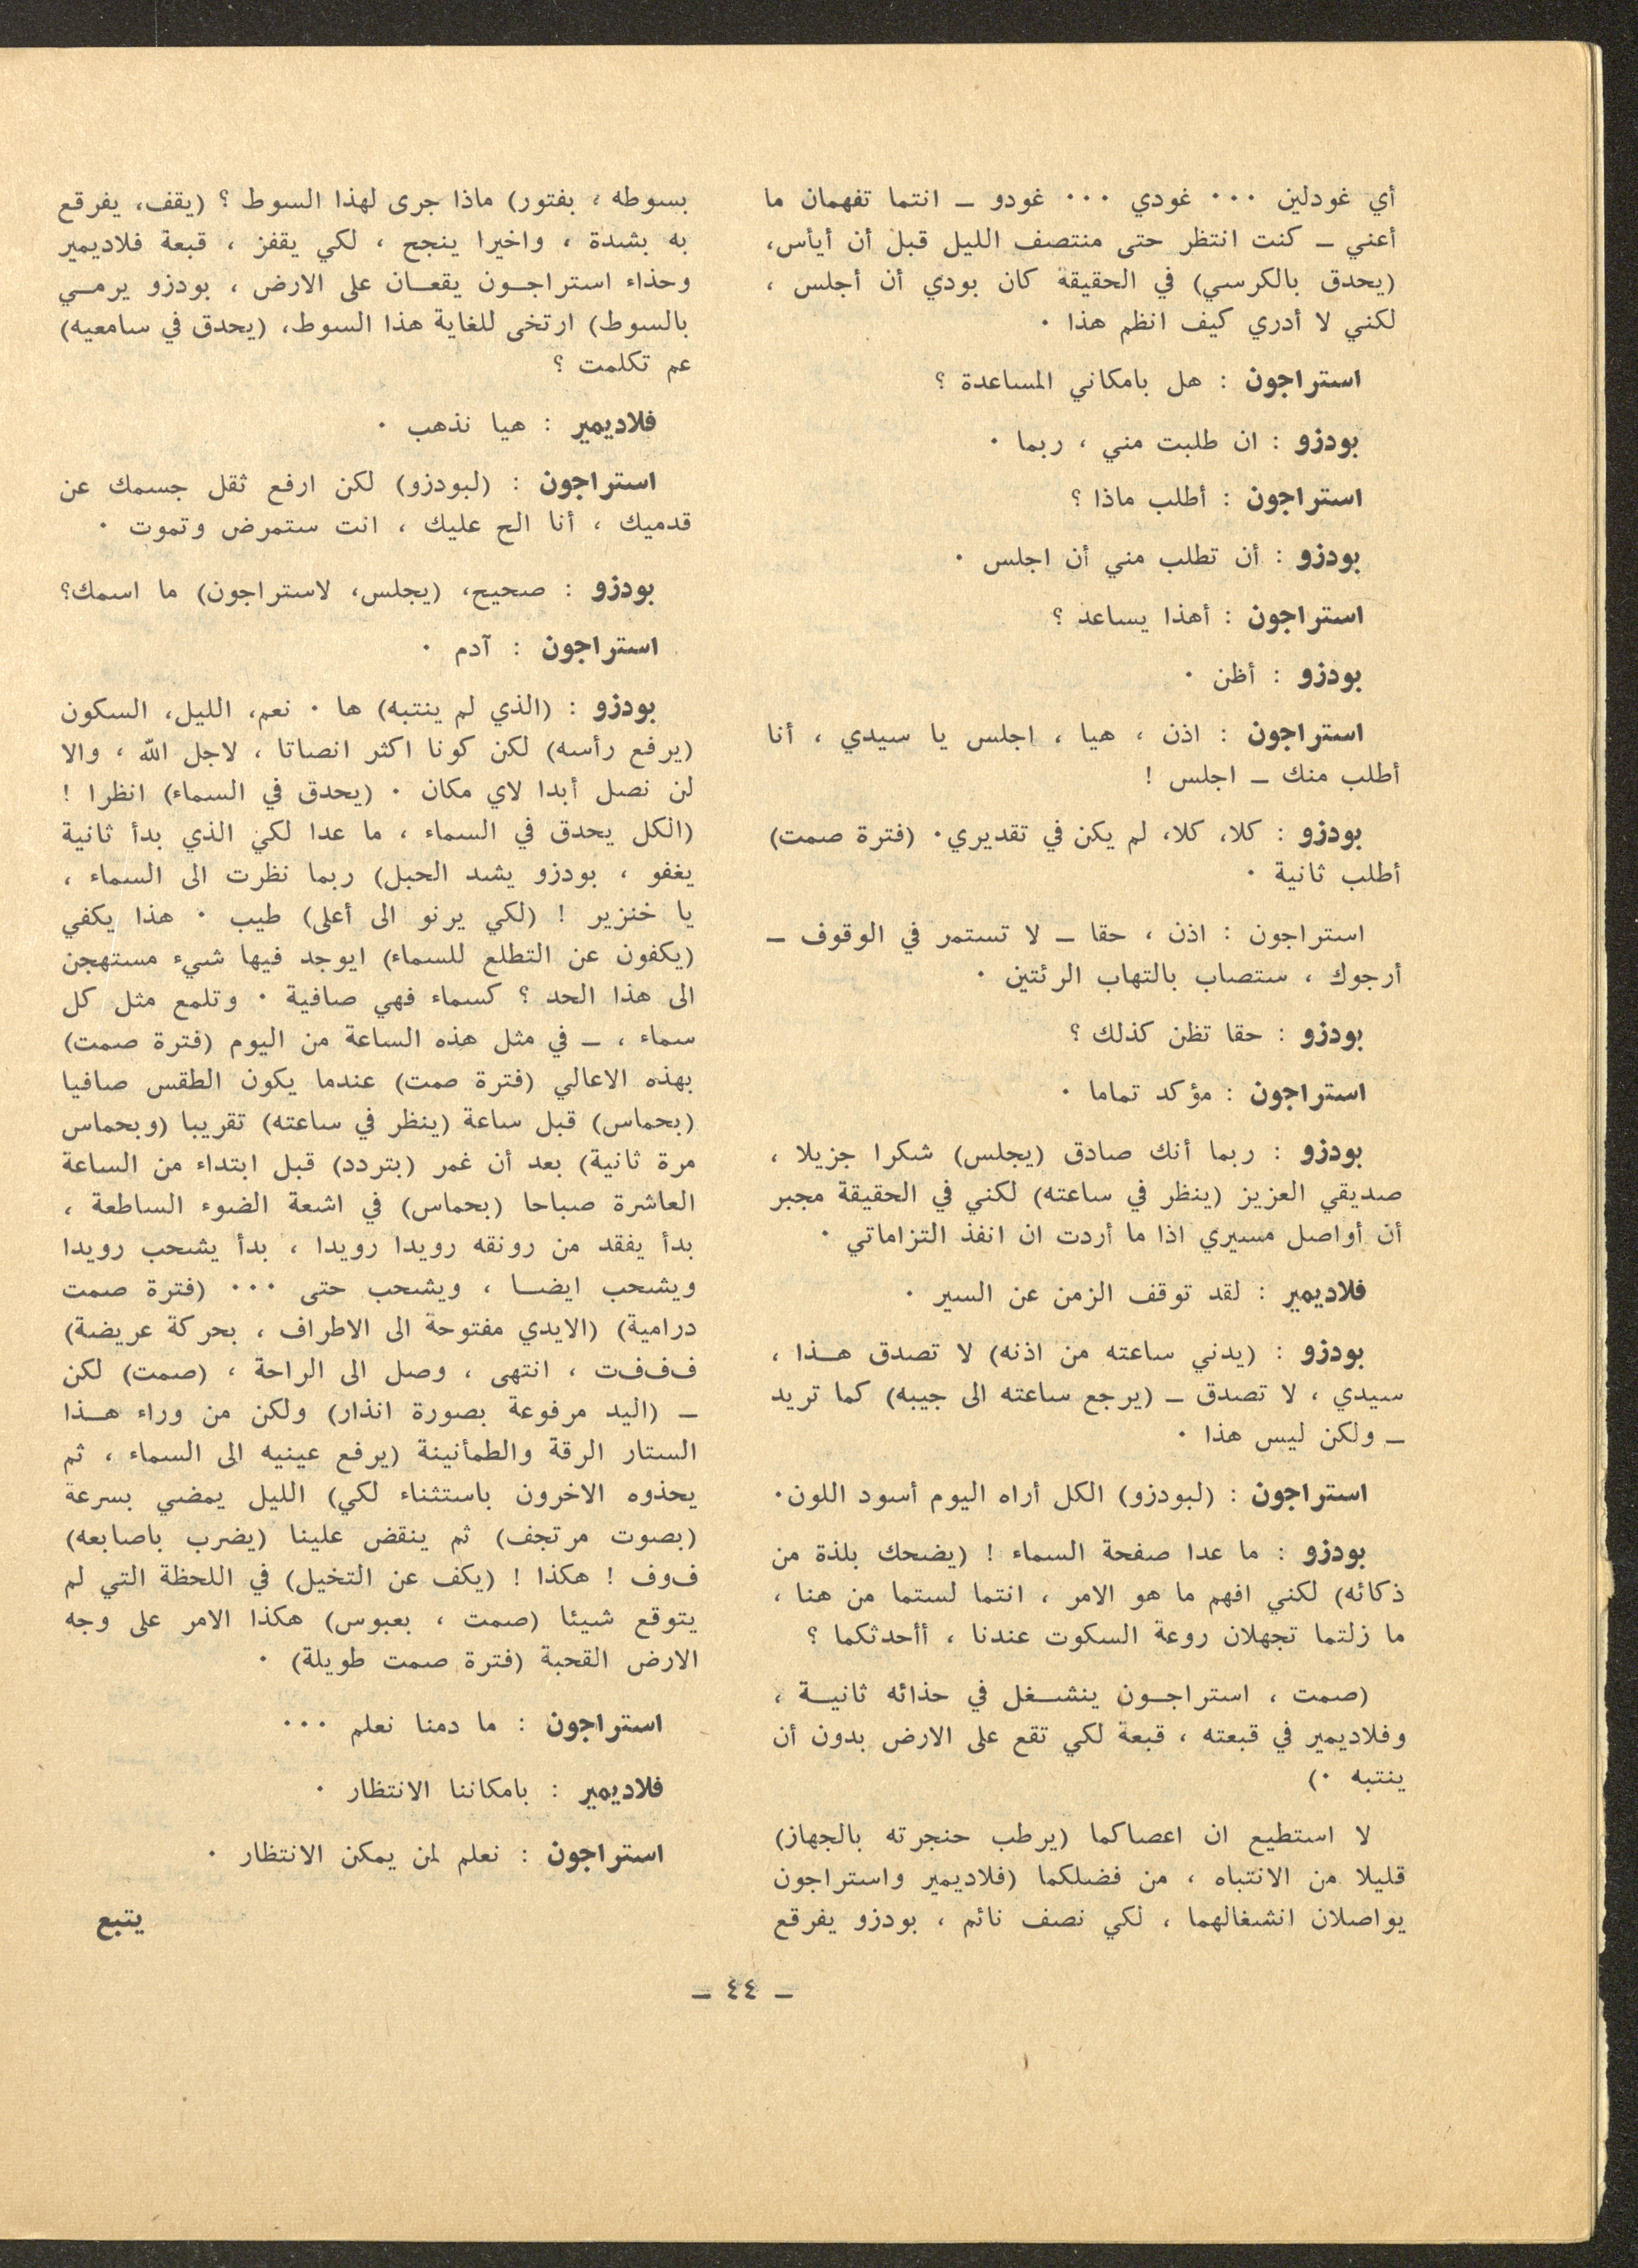 أي غودلين ٠٠٠ غودي ٠٠٠ غودو ــ انتما تفهمان ما
أعني ــ كنت انتظر حتى منتصف الليل قبل أن أيأس،
(يحدق بالكرسي) في الحقيقة كان بودي أن أجلس ،
لكني لا أدري كيف انظم هذا ٠
استراجون : هل بامكاني المساعدة ؟
بودزو : ان طلبت مني ، ربما ٠
استراجون : أطلب ماذا ؟
بودزو : أن تطلب مني أن اجلس ٠
استراجون : أهذا يساعد ؟
بودزو : أظن ٠
استراجون : اذن ، هيا ، اجلس يا سيدي ، أنا
أطلب منك ــ اجلس !
بودزو : كلا، كلا، لم يكن في تقديري٠ (فترة صمت)
أطلب ثانية ٠
استراجون : اذن ، حقا ــ لا تستمر في الوقوف ــ
أرجوك ، ستصاب بالتهاب الرئتين ٠
بودزو : حقا تظن كذلك ؟
استراجون : مؤكد تماما ٠
بودزو : ربما أنك صادق (يجلس) شكرا جزيلا ،
صديقي العزيز (ينظر في ساعته) لكني في الحقيقة مجبر
أن أواصل مسيري اذا ما أردت ان انفذ التزاماتي ٠
فلاديمير : لقد توقف الزمن عن السير ٠
بودزو : (يدني ساعته من اذنه) لا تصدق هــذا ،
سيدي ، لا تصدق ــ (يرجع ساعته الى جيبه) كما تريد
ــ ولكن ليس هذا ٠
استراجون : (لبودزو) الكل أراه اليوم أسود اللون٠
بودزو : ما عدا صفحة السماء ! (يضحك بلذة من
ذكائه) لكني افهم ما هو الامر ، انتما لستما من هنا ،
ما زلتما تجهلان روعة السكوت عندنا ، أأحدثكما ؟
(صمت ، استراجــون ينشــغل في حذائه ثانيــة ،
وفلاديمير في قبعته ، قبعة لكي تقع على الارض بدون أن
ينتبه ٠)
لا استطيع ان اعصاكما (يرطب حنجرته بالجهاز)
قليلا من الانتباه ، من فضلكما (فلاديمير واستراجون
يواصلان انشغالهما ، لكي نصف نائم ، بودزو يفرقع
بسوطه ، بفتور) ماذا جرى لهذا السوط ؟ (يقف، يفرقع
به بشدة ، واخيرا ينجح ، لكي يقفز ، قبعة فلاديمير
وحذاء استراجــون يقعــان على الارض ، بودزو يرمــي
بالسوط) ارتخى للغاية هذا السوط، (يحدق في سامعيه)
عم تكلمت ؟
فلاديمير : هيا نذهب ٠
استراجون : (لبودزو) لكن ارفع ثقل جسمك عن
قدميك ، أنا الح عليك ، انت ستمرض وتموت ٠
بودزو : صحيح، (يجلس، لاستراجون) ما اسمك؟
استراجون : آدم ٠
بودزو : (الذي لم ينتبه) ها ٠ نعم، الليل، السكون
(يرفع رأسه) لكن كونا اكثر انصاتا ، لاجل الله ، والا
لن نصل أبدا لاي مكان ٠ (يحدق في السماء) انظرا !
(الكل يحدق في السماء ، ما عدا لكي الذي بدأ ثانية
يغفو ، بودزو يشد الحبل) ربما نظرت الى السماء ،
يا خنزير ! (لكي يرنو الى أعلى) طيب ٠ هذا يكفي
(يكفون عن التطلع للسماء) ايوجد فيها شيء مستهجن
الى هذا الحد ؟ كسماء فهي صافية ٠ وتلمع مثل كل
سماء ، ــ في مثل هذه الساعة من اليوم (فترة صمت)
بهذه الاعالي (فترة صمت) عندما يكون الطقس صافيا
(بحماس) قبل ساعة (ينظر في ساعته) تقريبا (وبحماس
مرة ثانية) بعد أن غمر (بتردد) قبل ابتداء من الساعة
العاشرة صباحا (بحماس) في اشعة الضوء الساطعة ،
بدأ يفقد من رونقه رويدا رويدا ، بدأ يشحب رويدا
ويشحب ايضــا ، ويشحب حتى ٠٠٠ (فترة صمت
درامية) (الايدي مفتوحة الى الاطراف ، بحركة عريضة)
ف‌ف‌ف‌ت ، انتهى ، وصل الى الراحة ، (صمت) لكن
ــ (اليد مرفوعة بصورة انذار) ولكن من وراء هــذا
الستار الرقة والطمأنينة (يرفع عينيه الى السماء ، ثم
يحذوه الاخرون باستثناء لكي) الليل يمضي بسرعة
(بصوت مرتجف) ثم ينقض علينا (يضرب باصابعه)
ف‌وف ! هكذا ! (يكف عن التخيل) في اللحظة التي لم
يتوقع شيئا (صمت ، بعبوس) هكذا الامر على وجه
الارض القحبة (فترة صمت طويلة) ٠
استراجون : ما دمنا نعلم ٠٠٠
فلاديمير : بامكاننا الانتظار ٠
استراجون : نعلم لمن يمكن الانتظار ٠
يتبع
ــ ٤٤ ــ